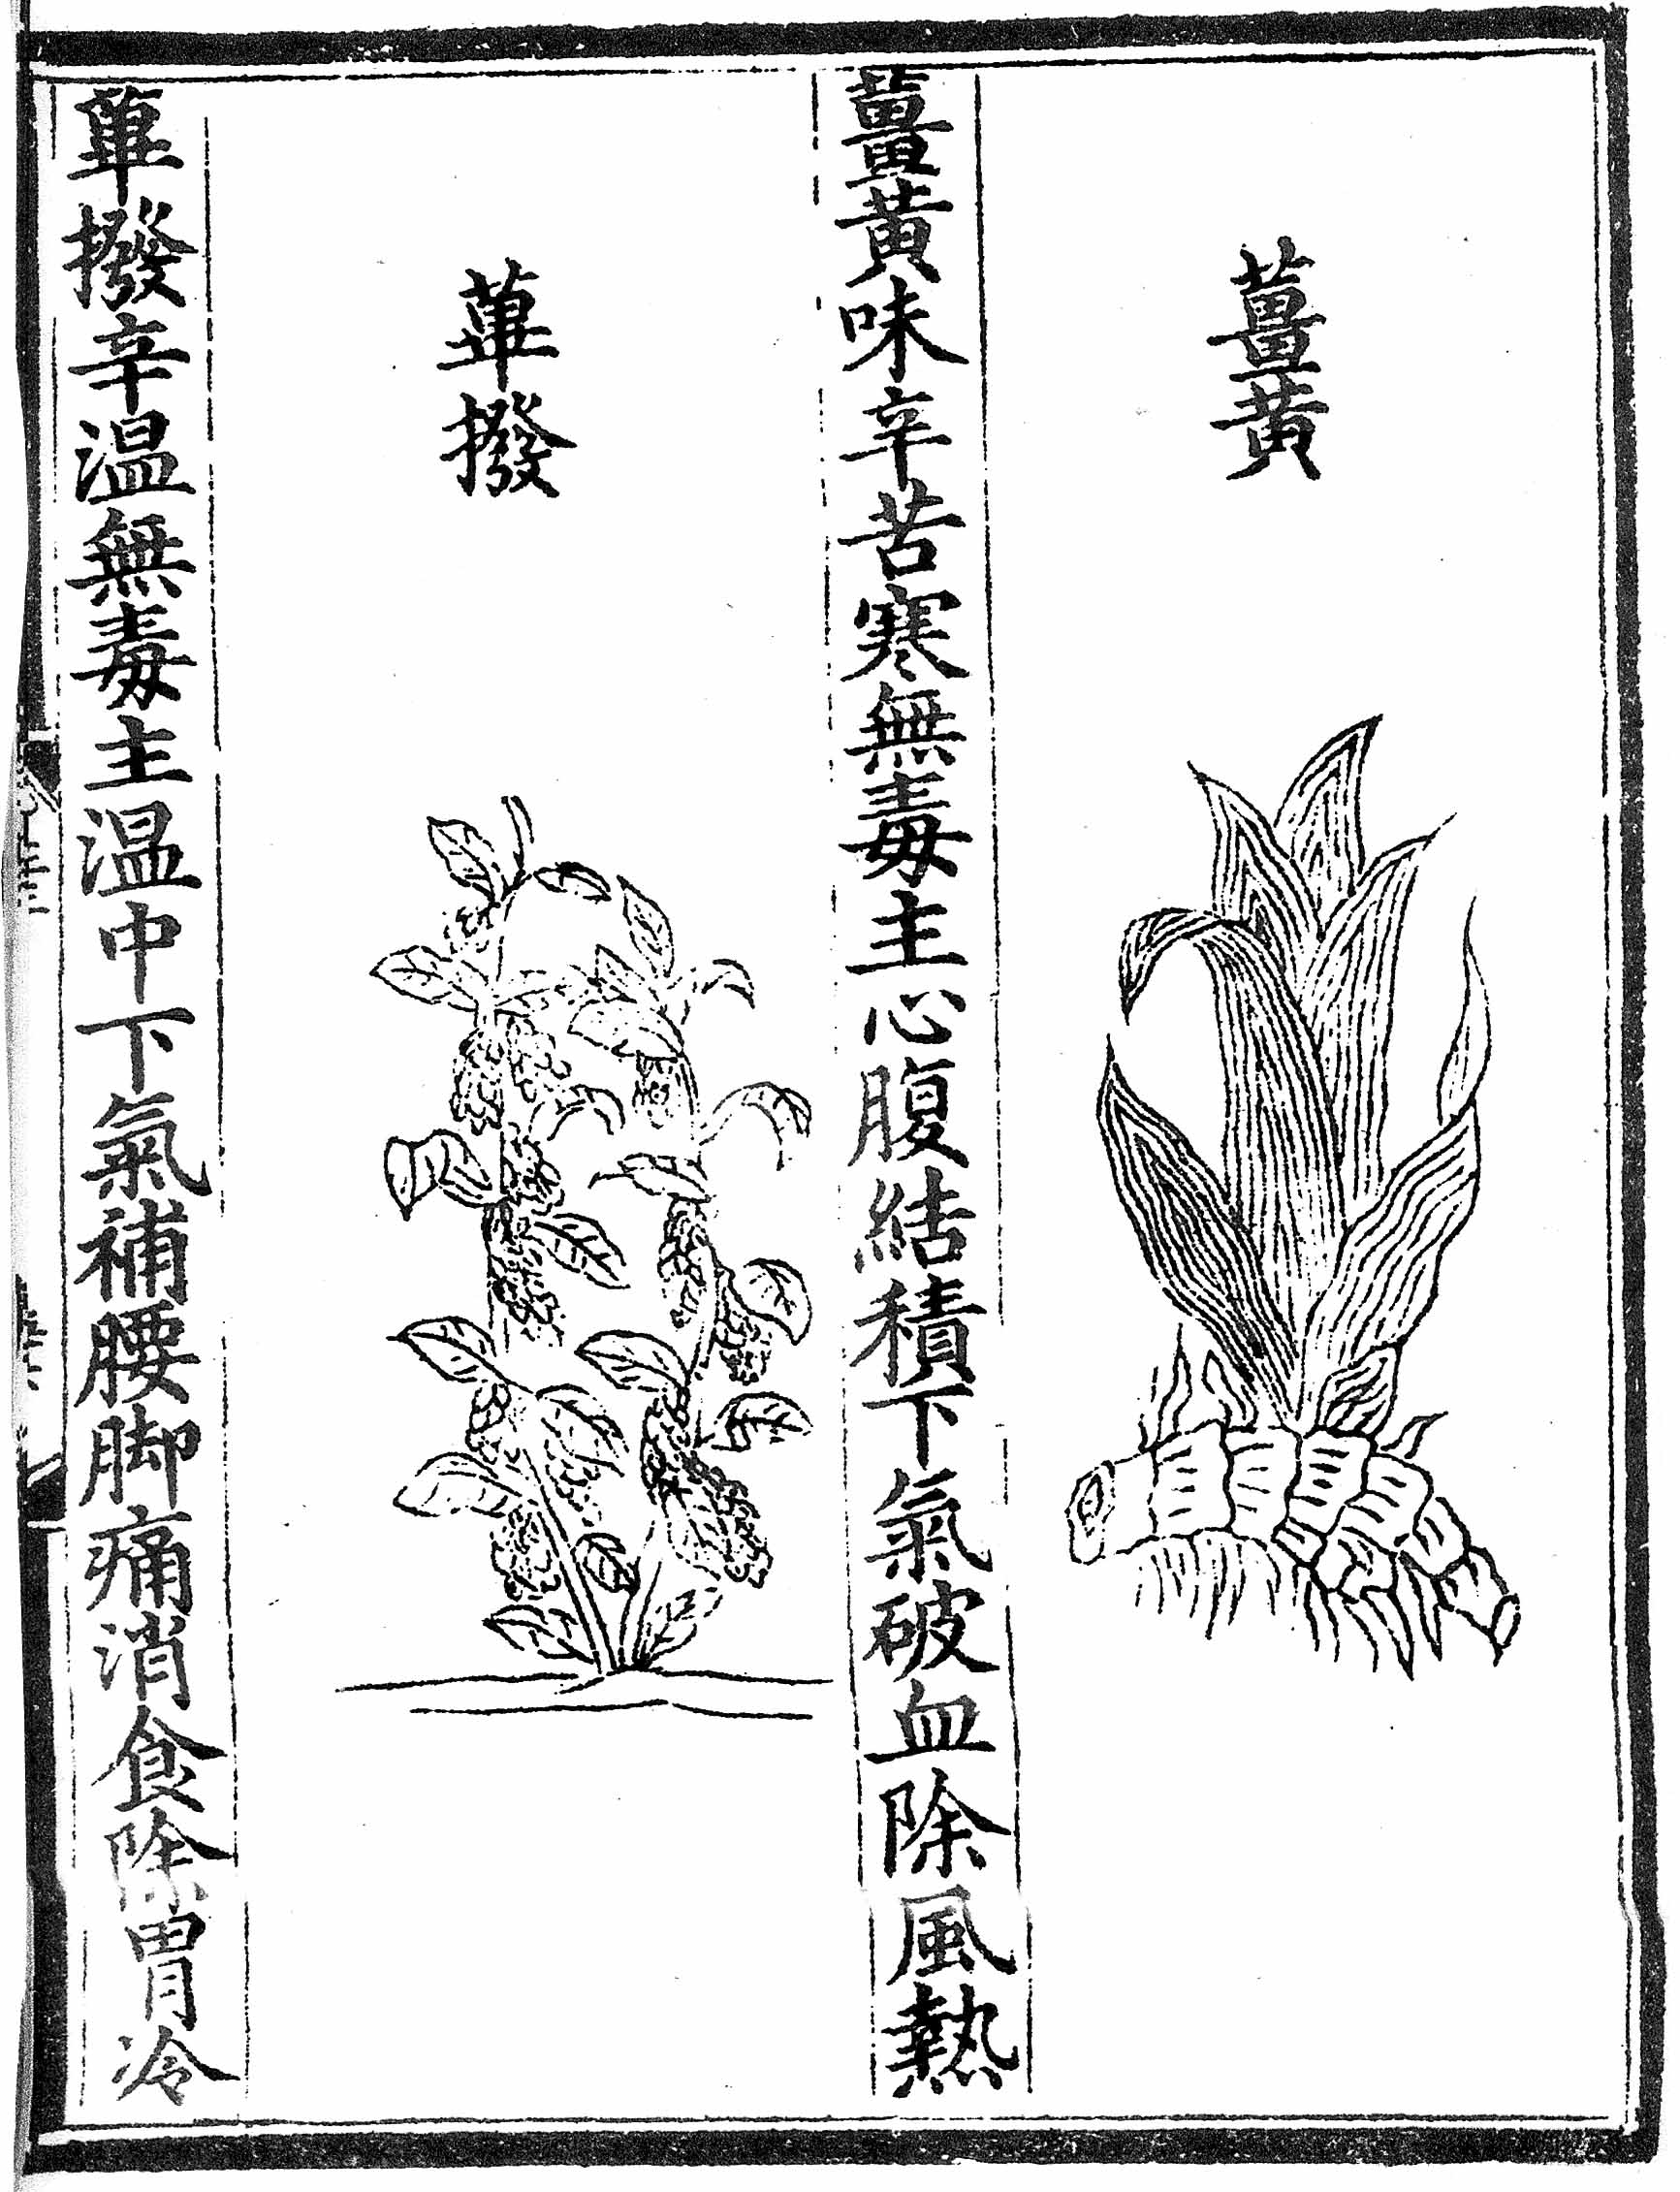 薑黃
薑黃味辛苦寒無毒主心腹結積下氣破血除風熱
蓽撥
蓽撥辛温無毒主温中下氣補腰脚痛消食除胃冷